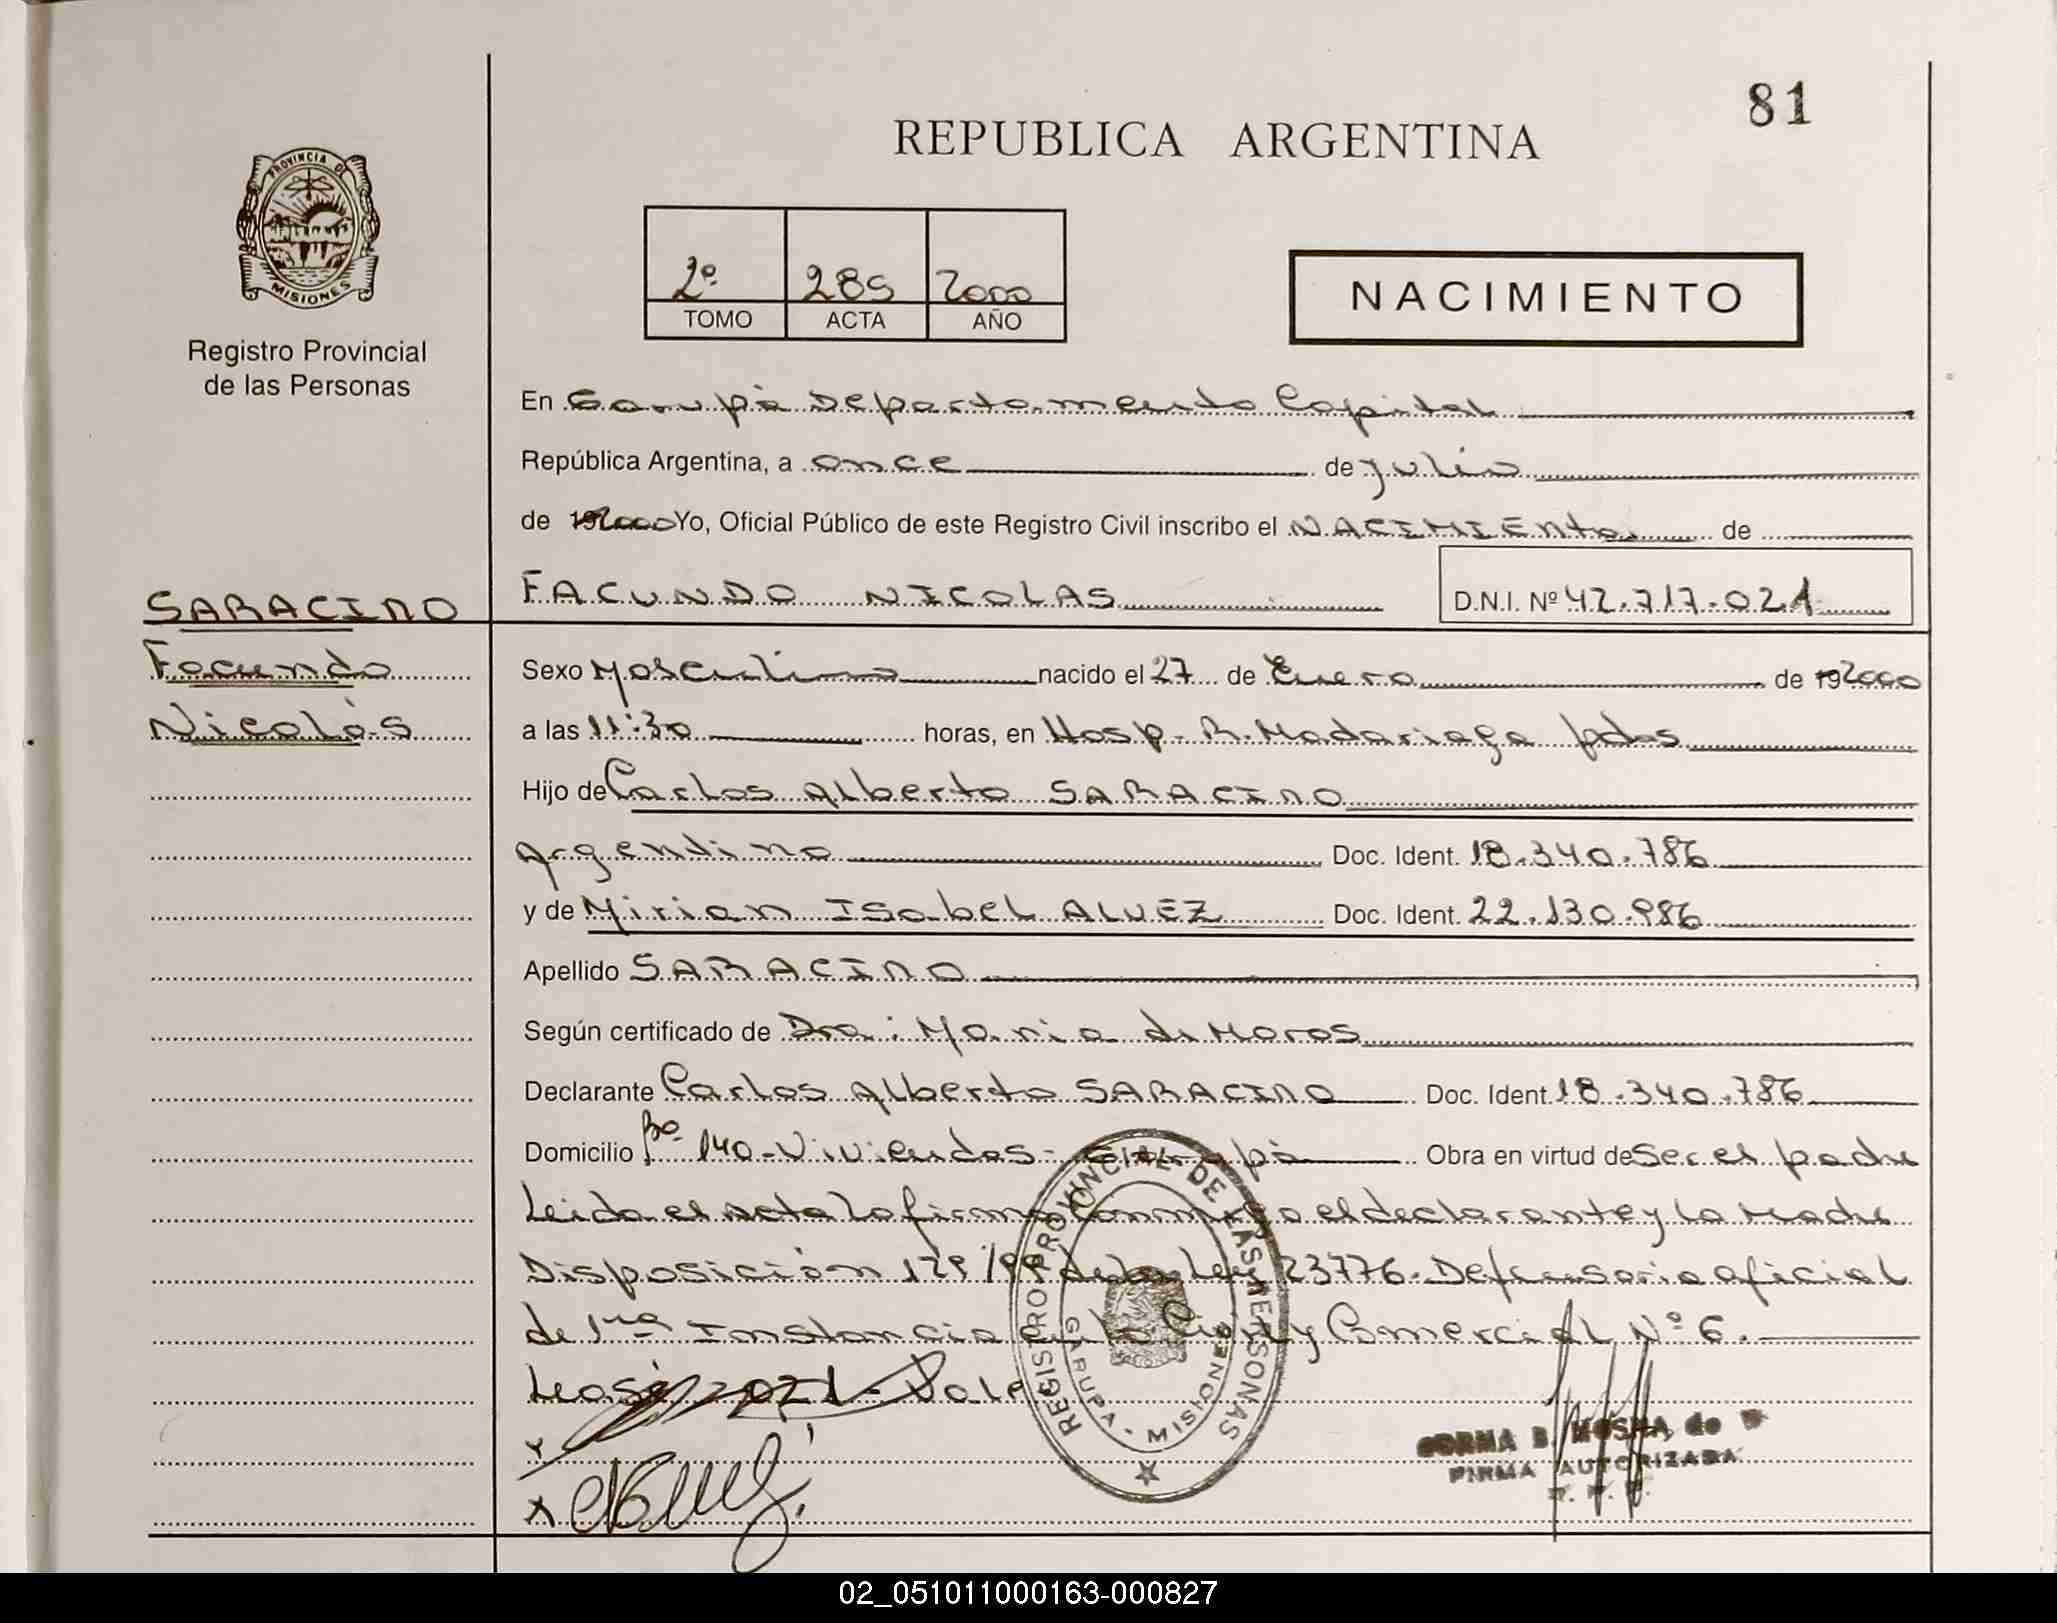 81
REPUBLICA ARGENTINA
PROVINCIA DE
MISIONES
Registro Provincial
de las Personas
2º 285 2000
TOMO ACTA AÑO
NACIMIENTO
En Garupà Departamento Capital
República Argentina, a once de julio
de 192000 Yo, Oficial Público de este Registro Civil inscribo el NACIMIENto de
SARACINO
Facundo
Nicolás
FACUNDO NICOLAS
D.N.I. Nº 42.717.021
Sexo Masculino nacido el 27 de Enero de 192000
a las 11:30 horas, en Hosp. R. Madariaga pdas
Hijo de Carlos Alberto SARACINO
Argentino Doc. Ident. 18.340.786
y de Mirian Isabel ALVEZ Doc. Ident. 22.130.986
Apellido SARACINO
Según certificado de Dra: Maria de Moros
Declarante Carlos Alberto SARACINO Doc. Ident 18.340.786
Domicilio Bº 140-Viviendas- Garupà Obra en virtud de Ser el padre
Leida el acta la firma conmigo el declarante y la Madre
Disposición 129/99 de la Ley 23776. Defensoria oficial
de 1ra Instancia en lo Civil y Comercial Nº 6.
Leasé 021- Vale
REGISTRO PROVINCIAL DE LAS PERSONAS
GARUPA - MISIONES
NORMA B. MOSKA de
FIRMA AUTORIZADA
02_051011000163-000827